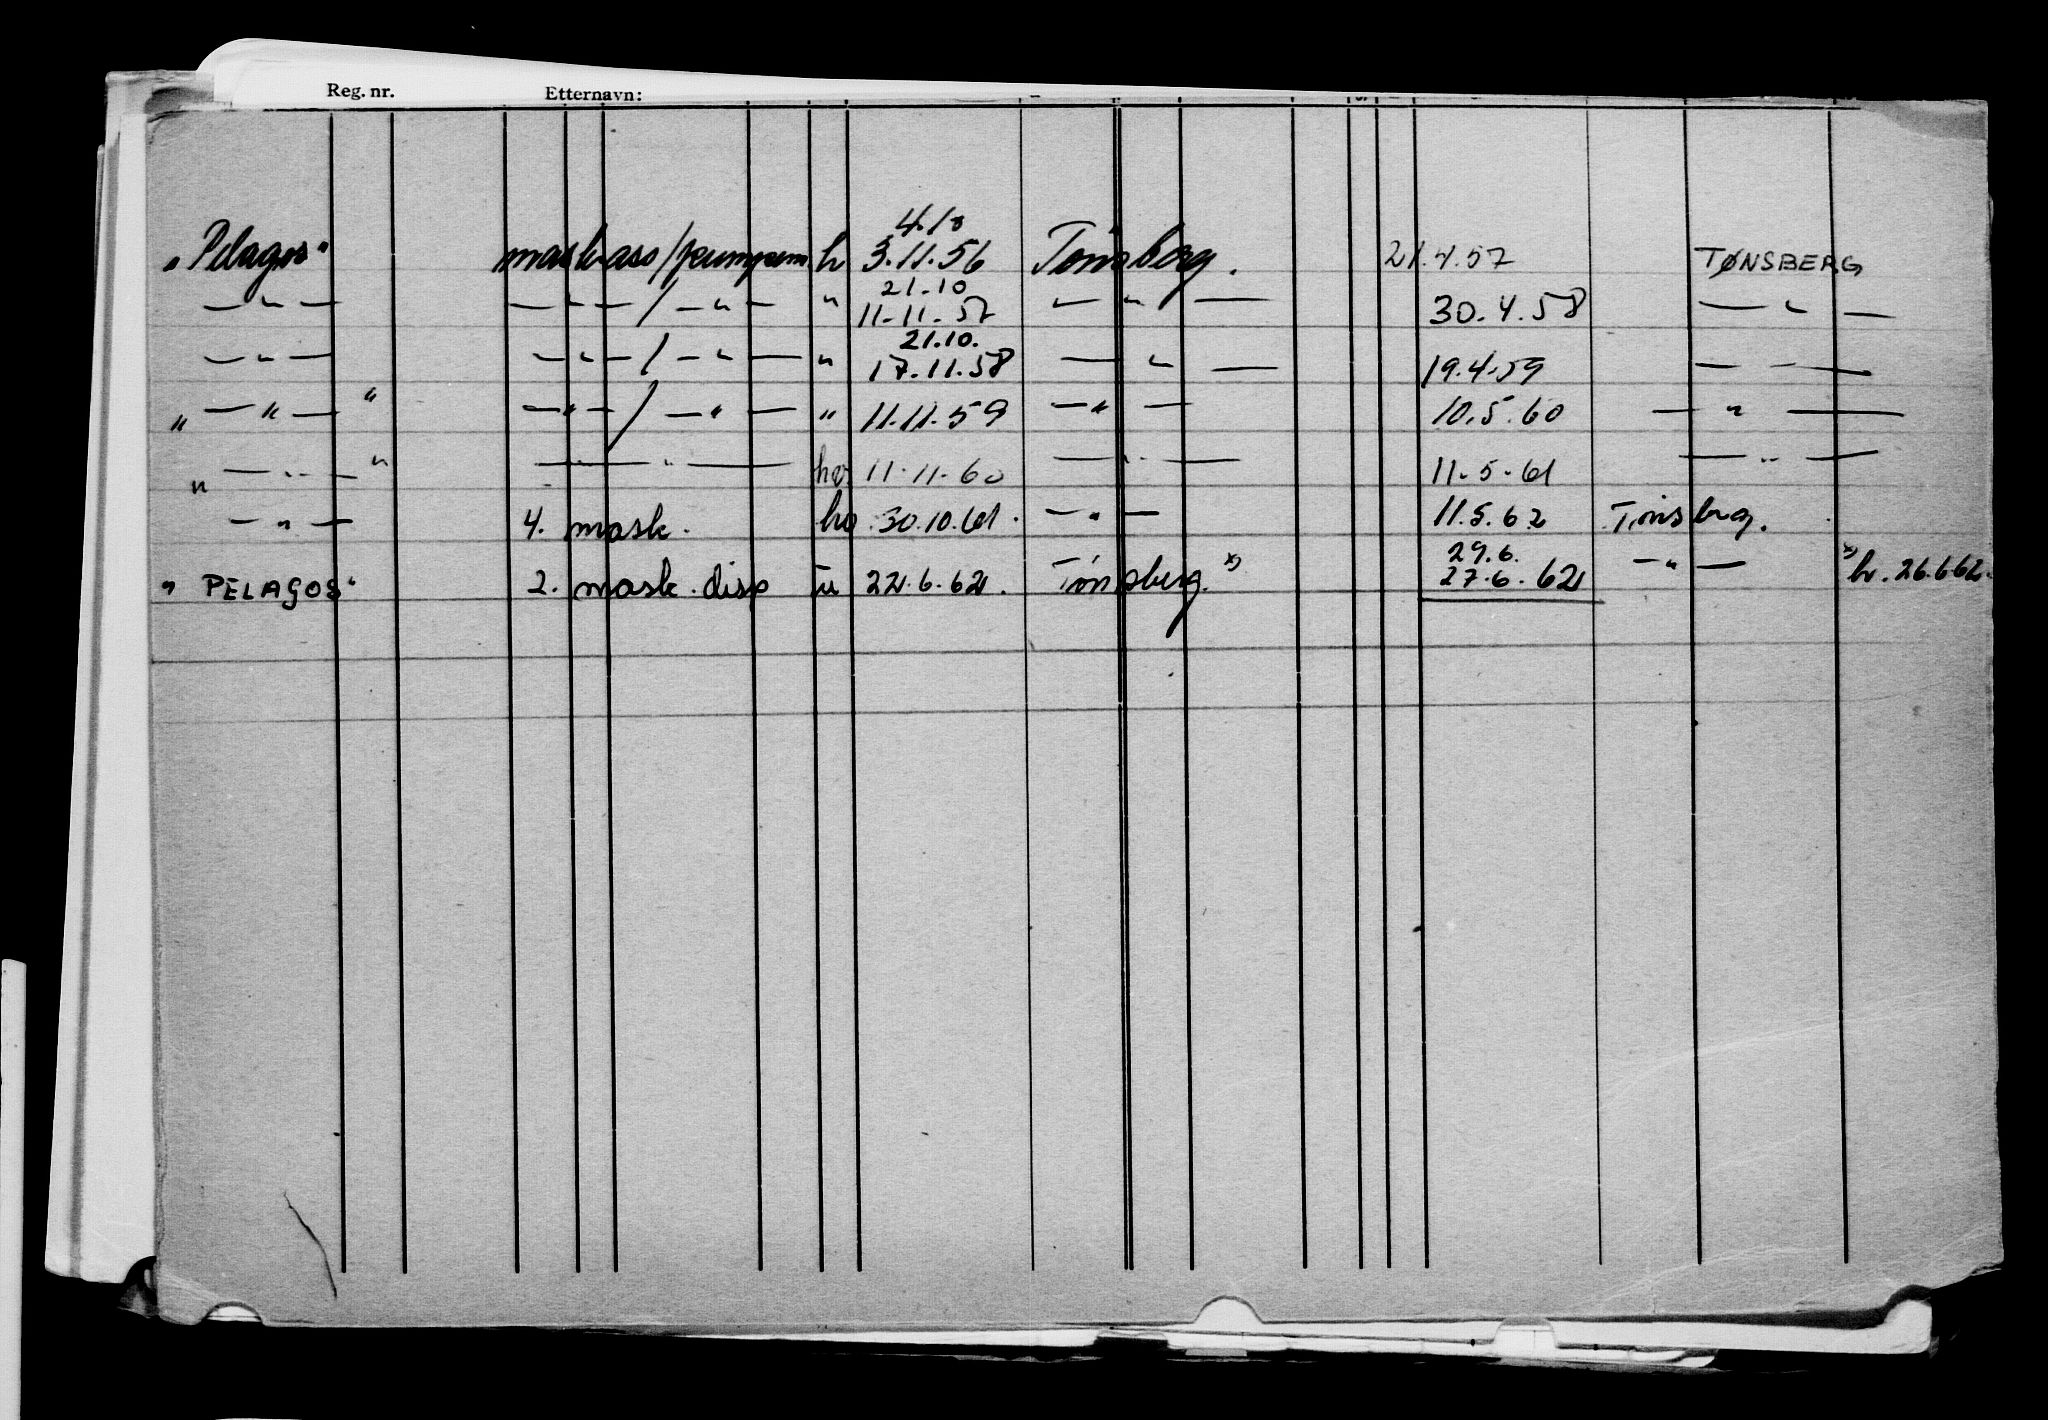 Reg. nr. Etternavn:
4.10
„Pelagos" mask.ass/pumpem. h 3.11.56 Tønsberg. 21.4.57 TØNSBERG
21.10
— " — — " — / — " — " 11.11.57 — " — 30.4.58 — " —
21.10.
— " — — " — / — " — " 17.11.58 — " — 19.4.59 — " —
„ — " — " — " — / — " — " 11.11.59 — " — 10.5.60 — " —
„ — " — " — " — hv 11.11.60 — " — 11.5.61 — " —
— " — 4. mask. hv 30.10.61. — " — 11.5.62 Tønsberg.
29.6.
„PELAGOS" 2. mask. disp u 22.6.62. Tønsberg. *) 27.6.62 — " — *) h. 26.6.62.